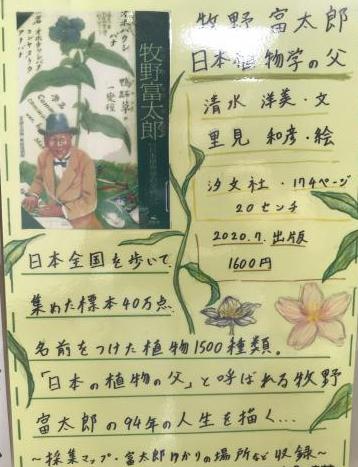 牧野 富太郎
日本植物学の父
清水 洋美・文
里見 和彦・絵
汐文社・174ページ
20センチ
2020.7.出版
1600円
牧野富太郎
日本全国を歩いて
集めた標本40万点
名前をつけた植物1500種類。
「日本の植物の父」と呼ばれる牧野
富太郎の94年の人生を描く…
～採集マップ・富太郎ゆかりの場所など収録～